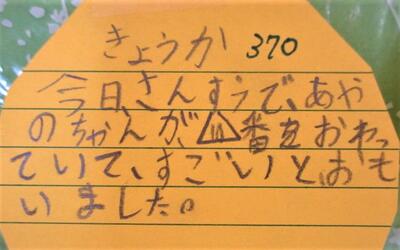 きょうか 370
今日、さんすうで、あや
のちゃんが、⚠番をおわっ
ていて、すごいと、おも
いました。